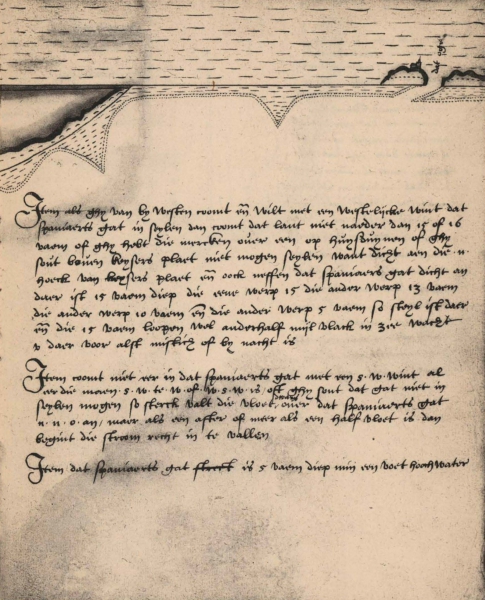 Item als ghy van by westen coomt en̄ wilt met een westelijcke wint dat
spaniaerts gat in seylen dan coomt dat lant niet naeder dan 15 of 16
vaem of ghy hebt die mercken over een op huysduynen of ghy
sout boven keysers plaet niet mogen seylen want dicht aen die n
hoeck van keysers plaet en̄ oock neffen dat spaniaers gat dicht an
daer ist 15 vaem diep die eene werp 15 die ander werp 13 vaem
die ander werp 10 vaem en̄ die ander werp 5 vaem so steyl ist daer
en̄ die 15 vaem loopen wel anderhalf mijl vlack in zee wacht
v daer voor alst mistich of by nacht is
Item coomt niet eer in dat spaniaerts gat met een s·w·wint al
eer die maen·s·w·te w·of w·s·w·is oft ghy sout dat gat niet in
seylen mogen so sterck valt die vloet over dat spaniaerts gat
n·n·o·an / maer als een after of meer als een half vloet is dan
begint die stroom recht in te vallen
Item dat spaniaerts gat is 5 vaem diep min een voet hooch water